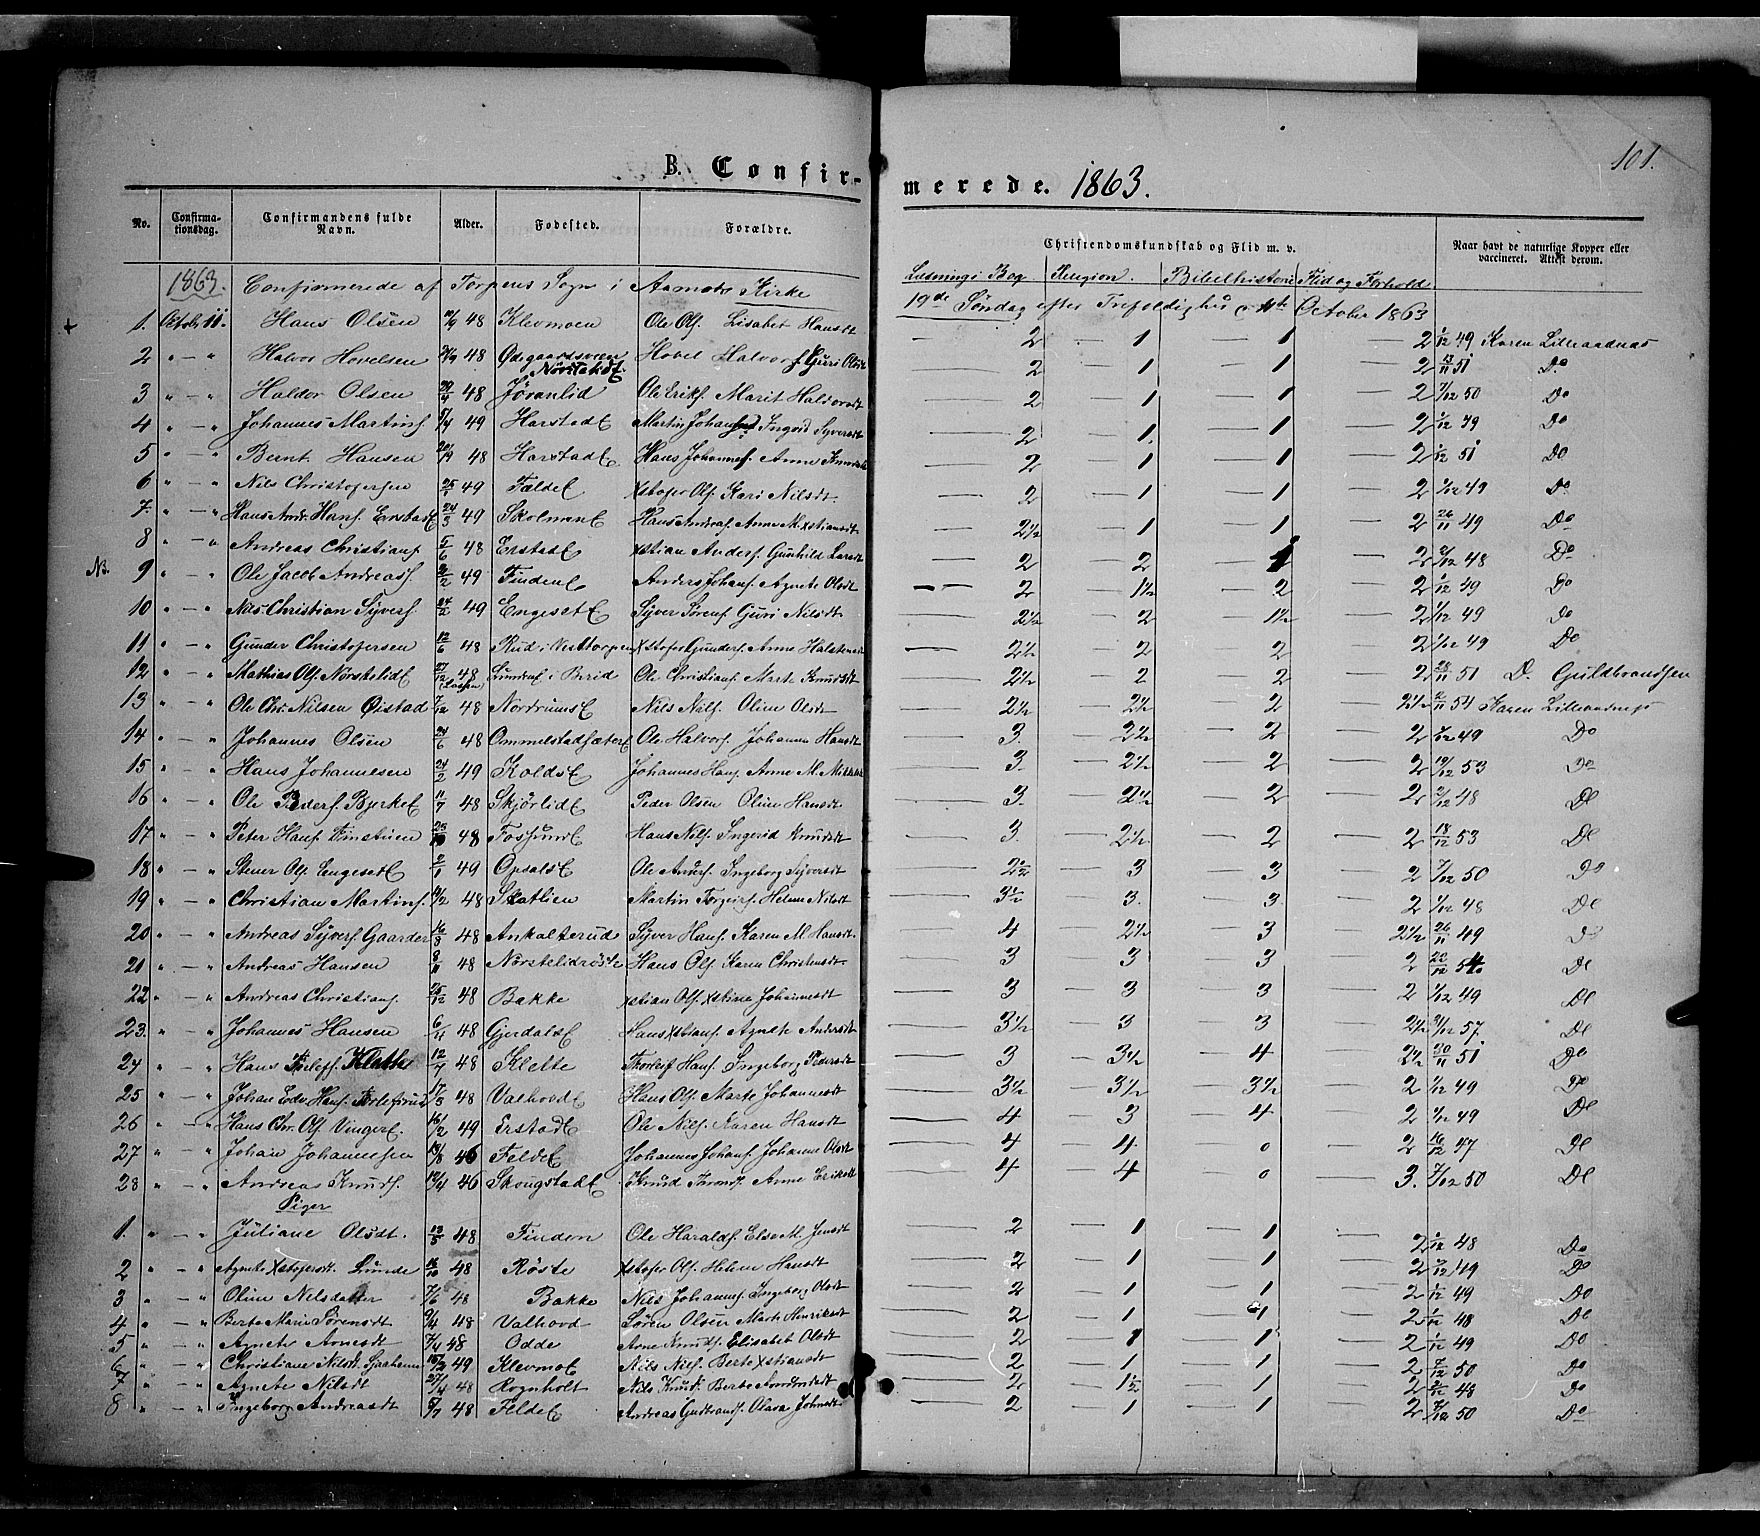 101.
B. Confir-merede. 1863.
No. Confirmationsdag. Confirmandens fulde Navn. Alder. Fødested. Forældre. Christendomskundskab og Flid m. v. Naar havt de naturlige Kopper eller vaccineret. Attest derom.
Læsning i Bog Religion. Bibelhistorie Flid og Forhold
1863. Confirmerede af Torpens Sogn i Aamodts Kirke 19de Søndag efter Trefoldighed October 1863
1. Octobr 11. Hans Olsen 48 Klevmoen Ole Ols. Lisabet Hansdt — 2 — 1 — 1 — 2 1/12 49 Karen Lilleaadnæs
2 " — " Halvor Hovelsen 48 Ødegaardsveien Hovel Halvors. Guri Olsdt — 2 — 1 — 1 — 2 51 Do
3 " — " Haldor Olsen 48 Jøranlid Ole Eriks. Marit Halvorsdt — 2 — 1 — 1 — 2 7/12 50 Do
4 " — " Johannes Martins. 5/4 49 Harstade Martin Johans. Ingrid Syversdt — 2 — 1. — 1 — 2 1/12 49 Do
5 " — " Bernt Hansen 48 Harstade Hans Johannes. Anne Knudsdt — 2 — 1 — 1 — 2 1/12 51 Do
6 " — " Nils Christofersen 49 Fælde Xstofer Ols. Kari Nilsdt. — 2 — 1 — 1 — 2 1/12 49 Do
7. " — " Hans Andr. Hans. Erstade 24/3 49 Skolmene Hans Andreas. Anne M. Xstiansdt — 2½ — 1 — 1 — 2 26/11 49 Do
8 " — " Andreas Christians. 5/6 48 Erstade Xstian Anders. Gunhild Larsdt — 2 — 2 — 1 — 2 48 Do
NB. 9 " — " Ole Jacob Andreass. 49 Findene Anders Johans. Agnete Olsdt — 2 — 1½ — 2 — 2 1/12 49 Do
10 " — " Nils Christian Syvers. 24/2 49 Engesete Syver Sørens. Guri Nilsdt — 2½ — 2 — 1½ — 2 1/12 49 Do
11 " — " Gunder Christofersen 12/6 48 Rud i Vesttorpen Xstofer Gunders. Anne Halstensdt — 2½ — 2 — 2 — 2 1/12 49 Do
12 " — " Mathias Ols. Nørstelide 27/12 48 i Birid Ole Christians. Marte Knudsdt — 2½ — 2 — 2 — 2 28/11 51 D. Guldbrandsen
13 " — " Ole Chr. Nilsen Øistad 7/12 48 Nordrumse Nils Nils. Oline Olsdt — 2½ — 2½ — 2 — 2½ 54 Karen Lilleaadnæs
14 " — " Johannes Olsen 24/6 48 Ommelstadsætere Ole Halvors. Johanne Hansdt — 3. — 2½ — 2 — 2 1/12 49 Do
15 " — " Hans Johannesen 24/2 49 Koldse Johannes Hans. Anne M. — 3. — 2½ — 2 — 2 19/12 53 Do
16 " — " Ole Peders. Bjerke 11/7 48 Skjørlide Peder Olsen Oline Hansdt — 3. — 2½ — 2 — 2 48 Do
17 " — " Peter Hans. 48 Fossunde Hans Nils. Ingerid Knudsdt — 3. — 2½ — 2 — 2 18/12 53 Do
18 " — " Stener Ols. Engesete 2/1 49 Opsalse Ole Anders. Ingeborg Syversdt — 2½ — 3 — 3 — 2 7/12 50 Do
19 " — " Christian Martins. 48 Skatlien Martin Torgeirs. Helene Nilsdt — 3½ — 3. — 3. — 2 1/12 48 Do
20 " — " Andreas Syvers. Gaarder 16/8 48 Ankalterud Syver Hans. Karen M. Hansdt. — 4 — 2½ — 3 — 2½ 26/11 49 Do
21 " — " Andreas Hansen 8/11 48 Nørstelidrøste Hans Ols. Karen Christensdt. — 3 — 3 — 3 — 2 54 Do
22 " — " Andreas Christians. 25/12 48 Bakke Xstian Ols. Xstine Johannesdt — 3 — 3 — 3 — 2 1/12 49 Do
23. " — " Johannes Hansen 6/11 48 Gjerdalse Hans Xstians. Agnete Andersdt — 3½ — 3 — 3 — 2½ 57. Do
24 " — " Hans Torleffs. Klette 12/7 48 Klette Thorleif Hans. Ingeborg Pedersdt — 3 — 3½ — 4 — 2½ 30/11 51 Do
25 " — " Johan Edv. Hans. 17/3 48 Valhovde Hans Ols. Marte Johannesdt — 3½ — 3½ — 3½ — 2 1/12 49 Do
26 " — " Hans Chr. Ols. Vingere. 16/2 49 Erstade Ole Nils. Karen Hansdt — 4 — 3 — 4 — 2 1/12 49 Do
27 " — " Johan Johannesen 46 Felde Johannes Johans. Johanne Olsdt — 4 — 4 — 0 — 2 16/12 47 Do
28 " — " Andreas Knuds. 46 Skougstade Knud Tronds. Anne Eriksdt — 4 — 4 — 0 — 3. 7/12 50 Do
Piger
1. " — " Juliane Olsdt. 48 Finden Ole Haralds. Else M. Jensdt — 2 — 1 — 1 — 2 1/12 48 Do
2 " — " Agnete Xstofersdt. Lunde 48 Røste Xstofer Ols. Helene Hansdt — 2 — 1 — 1 — 2 49 Do
3 " — " Oline Nilsdatter 7/6 48 Bakke Nils Johanns. Ingeborg Olsdt — 2 — 1 — 1 — 2 1/12 49 Do
4 " — " Berte Marie Sørensdt 9/4 48 Valhovd Søren Olsen Marte Henriksdt — 2 — 1 — 1 — 2 1/12 48 Do
5 " — " Agnete Arnesdt 7/4 48 Odde Arne Knuds. Elisabet Olsdt — 2 — 1 — 1 — 2 1/12 49 Do
6 " — " Christiane Nilsdt. 49 Klevmoe Nils Nils. Berte Xstiansdt — 2 — 1 — 1 — 2 7/12 50 Do
7 " — " Agnete Nilsdt 27/4 48 Rognholt Nils Knuds. Berte — 2 — 1½ — 1 — 2 48 Do
8 " — " Ingeborg Andreasdt 5/7 48 Felde Andreas Gudbrands. Olava Johnsdt — 2 — 1 — 1 — 2 7/12 50 Do